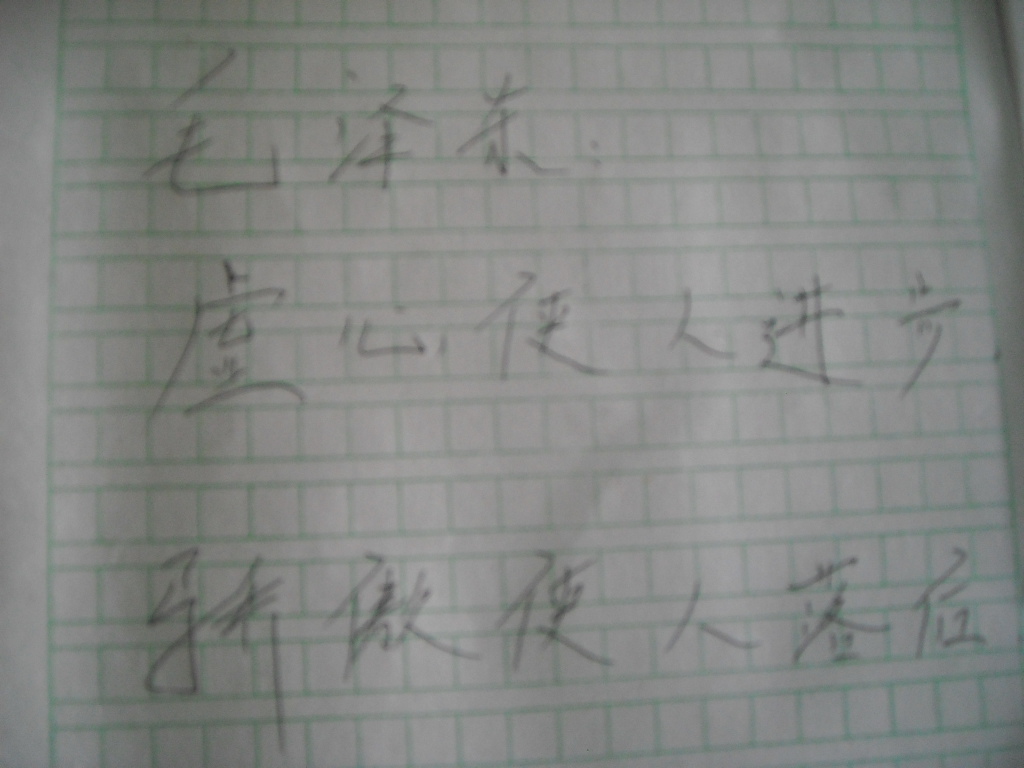 毛泽东:
虚心使人进步.
骄傲使人落后